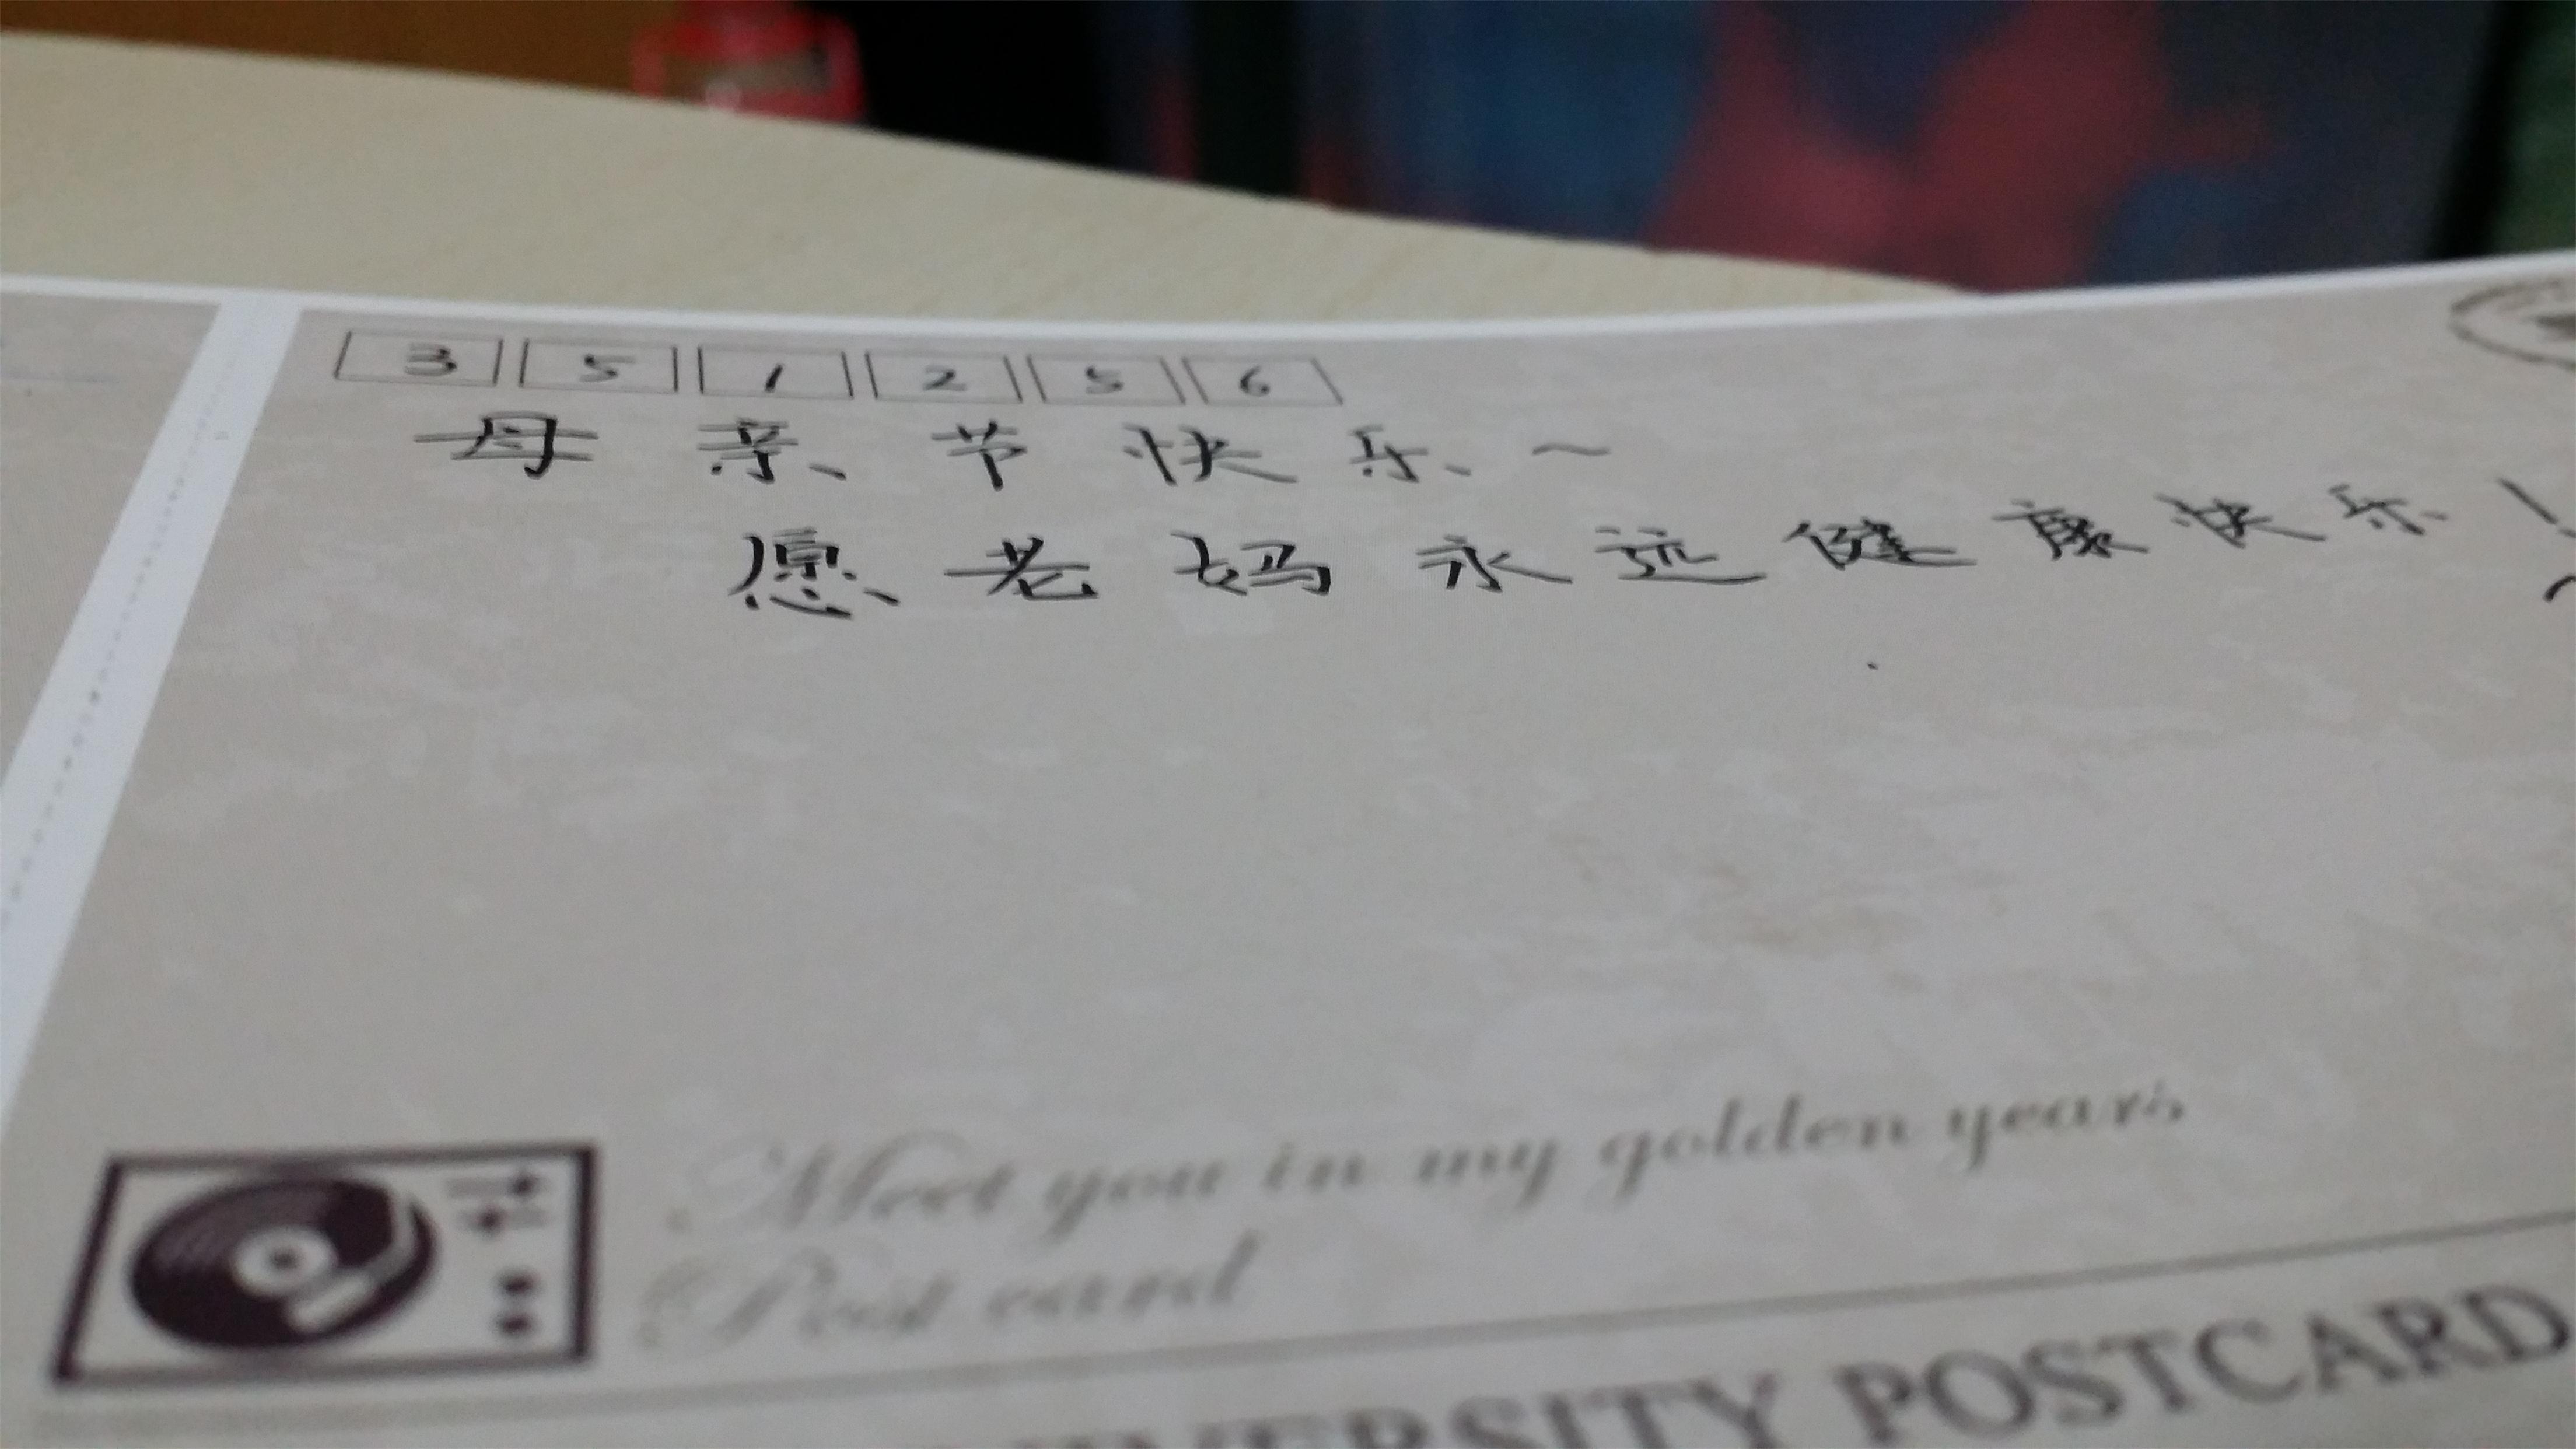 3 5 1 2 5 6
母亲节快乐~
愿老妈永远健康快乐!
Meet you in my golden years
Post card
POSTCARD